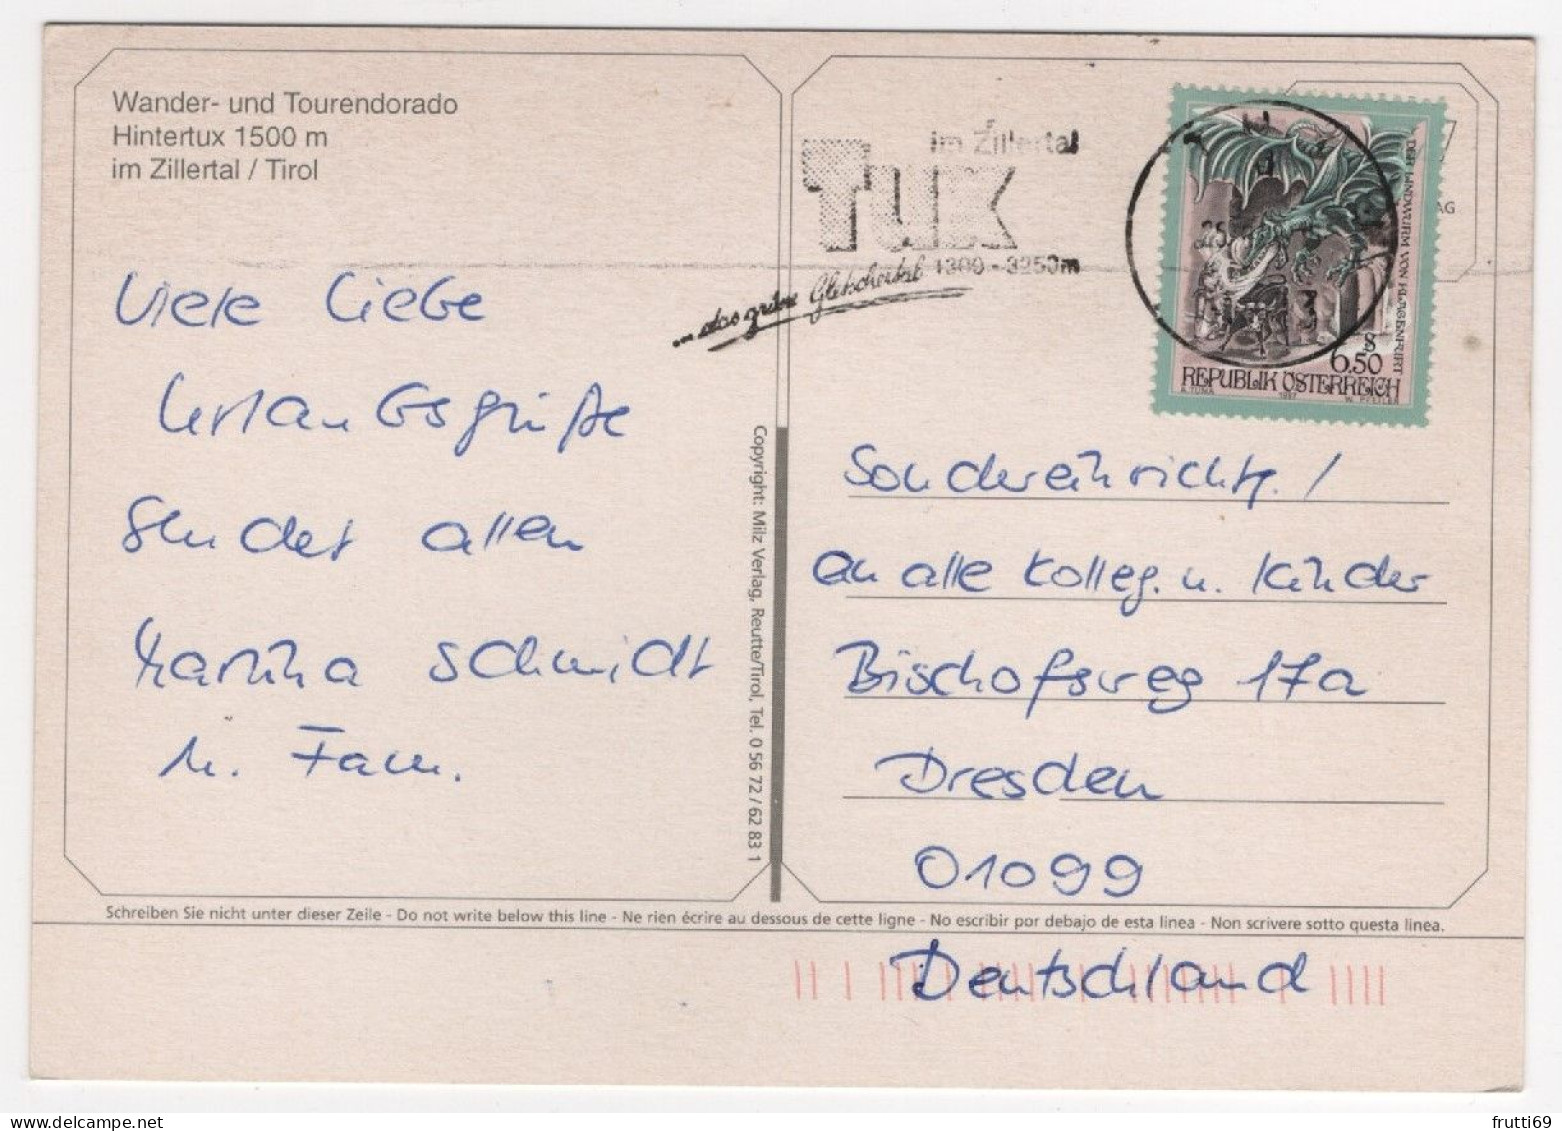 Wander- und Tourendorado
Hintertux 1500 m
im Zillertal / Tirol
Viele Liebe
Urlaubsgrüße
sendet allen
Martina Schmidt
u. Fam.
Copyright: Milz Verlag, Reutte/Tirol, Tel. 0 56 72 / 62 83 1
im Zillertal
Tux
1300 - 3250m
... das grüne Gletschertal
DER LINDWURM VON KLAGENFURT
S
6.50
REPUBLIK ÖSTERREICH
A. TUMA 1997 W. PFEILER
Sondereinrichtg. /
an alle Kolleg. u. Kinder
Bischofsweg 17a
Dresden
01099
Deutschland
Schreiben Sie nicht unter dieser Zeile - Do not write below this line - Ne rien écrire au dessous de cette ligne - No escribir por debajo de esta linea - Non scrivere sotto questa linea.
frutti69